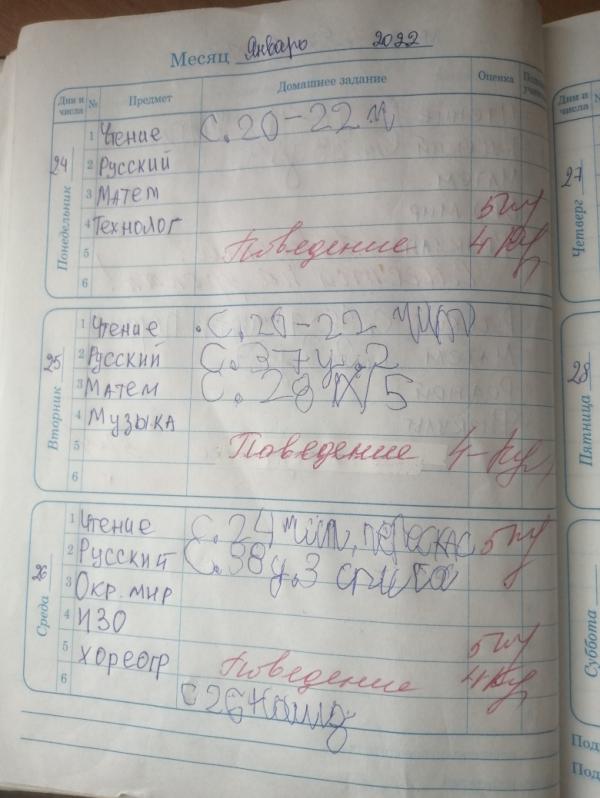 Месяц Январь 2022
Дни и числа № Предмет Домашнее задание Оценка
Понедельник 24
1 Чтение с. 20-22 ч
2 Русский
3 Матем
4 Технолог 5
5 Поведение 4
6
Вторник 25
1 Чтение с. 20-22 чит
2 Русский с. 37 у. 2
3 Матем с. 28 № 5
4 Музыка
5 Поведение 4-
6
Среда 26
1 Чтение с. 24 чит, перескас 5
2 Русский с. 38 у. 3
3 Окр. мир
4 ИЗО 5
5 хореогр Поведение 4
6 с 26
Дни и числа
Четверг 27
Пятница 28
Суббота